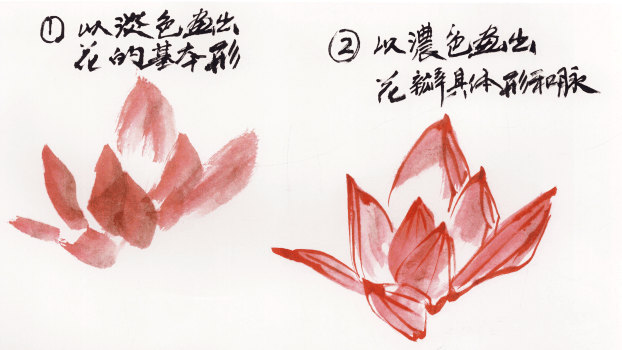 ① 以淡色画出
花的基本形
② 以濃色画出
花瓣具体形和脉